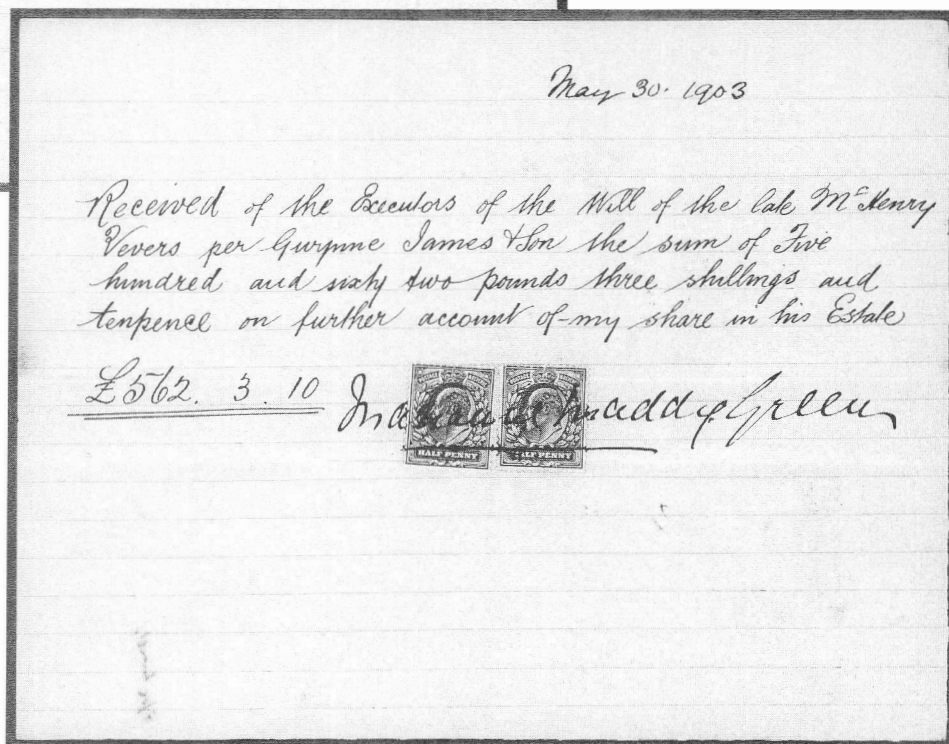 May 30. 1903
Received of the Executors of the Will of the late Mr Henry
Vevers per Gwynne James & Son the sum of Five
hundred and sixty two pounds three shillings and
tenpence on further account of my share in his Estate
£562. 3. 10
Maddy Green
HALF PENNY HALF PENNY